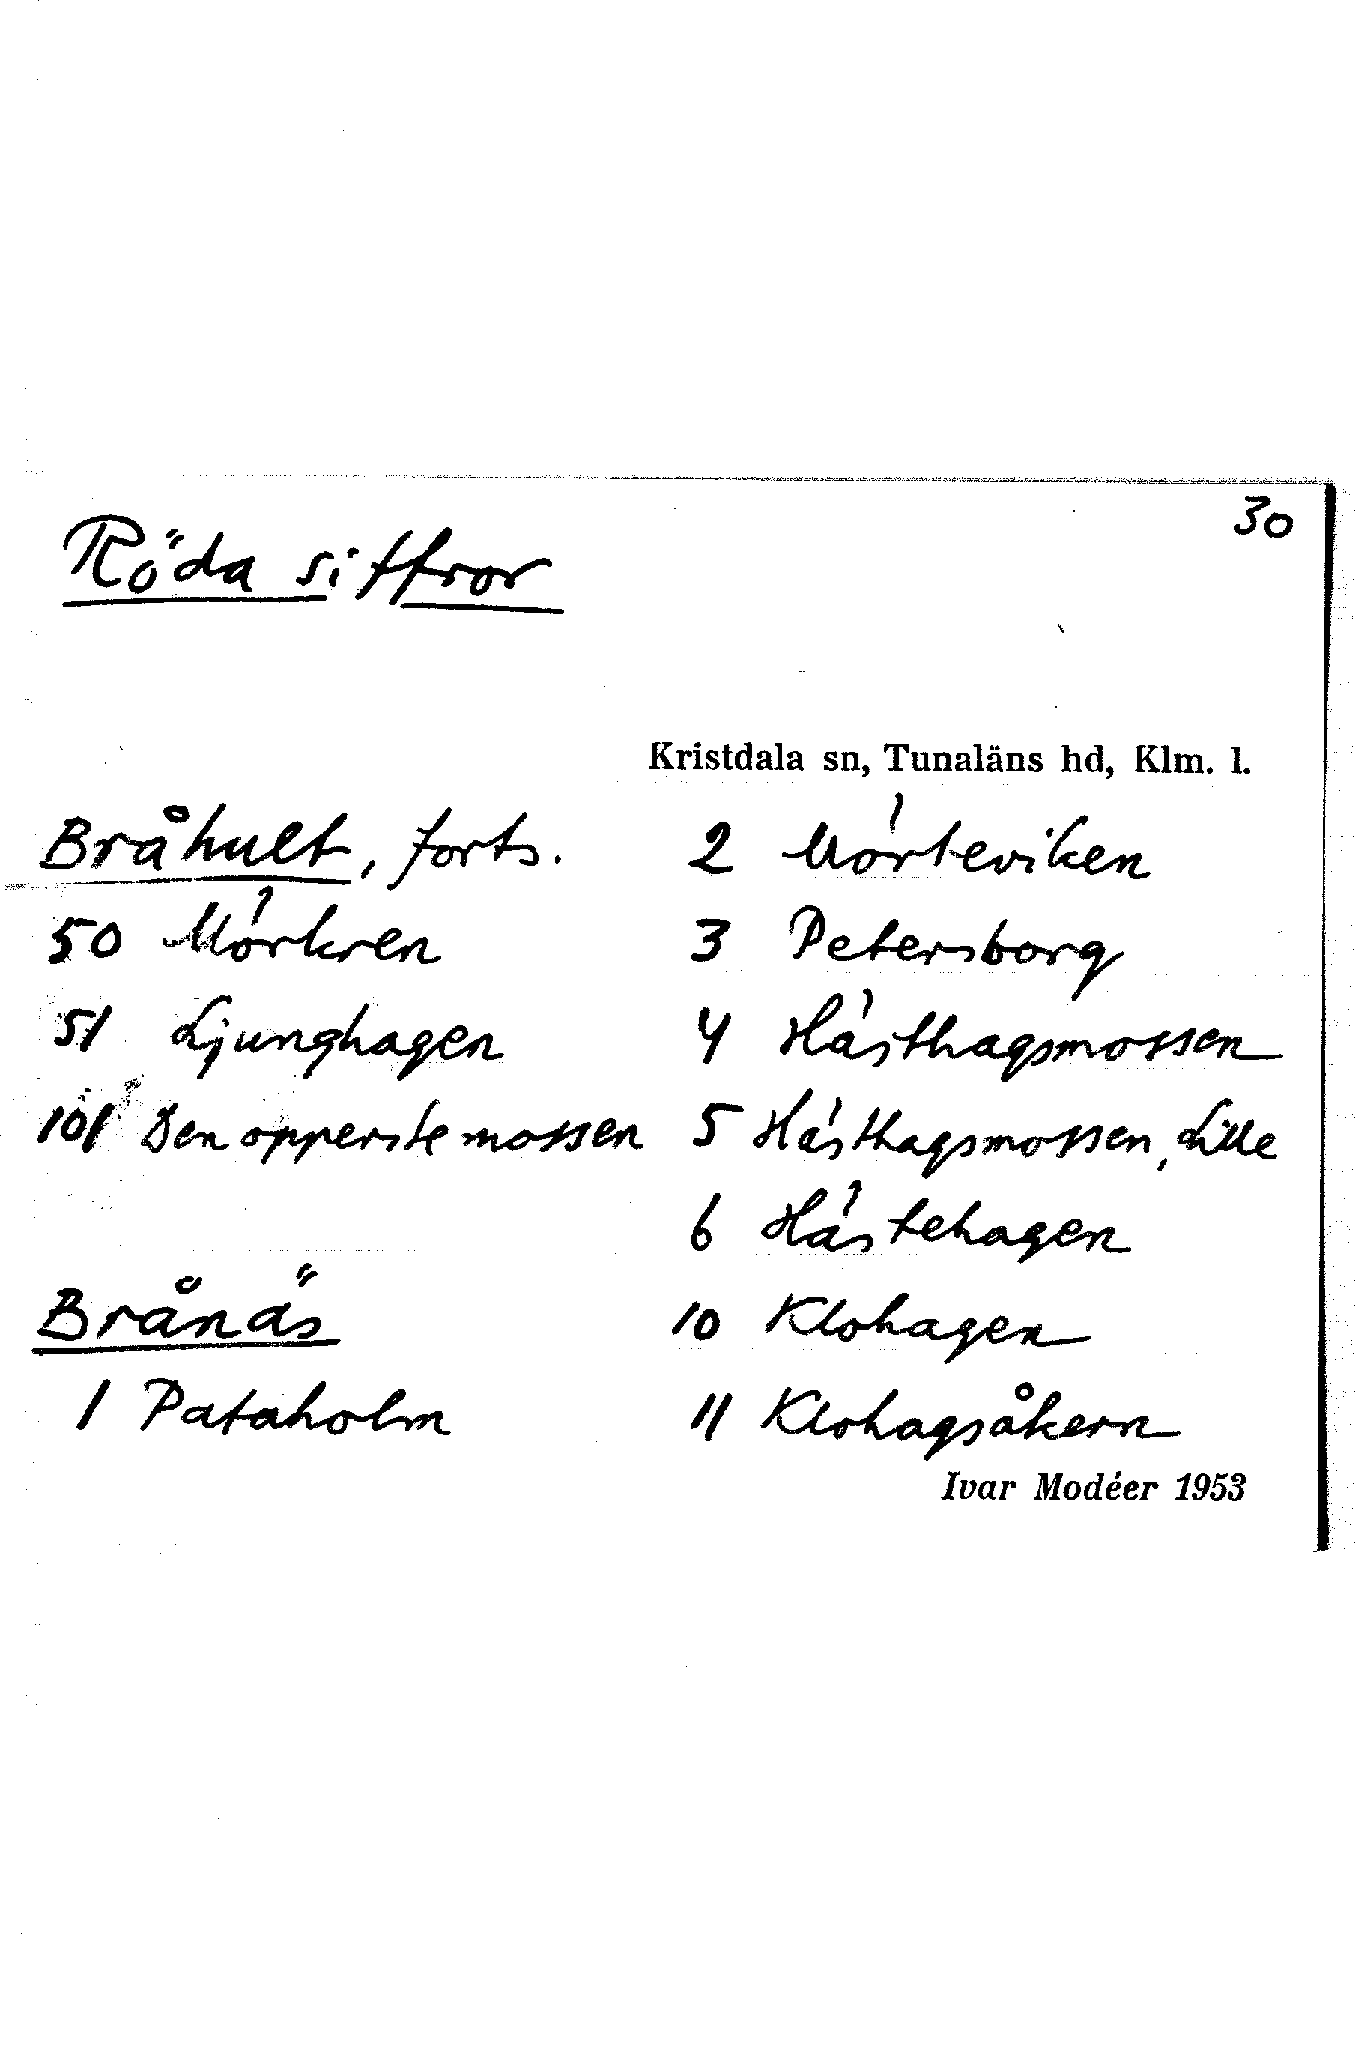 30
Röda siffror
Kristdala sn, Tunaläns hd, Klm. l.
Bråhult, forts.
50 Mörkren
51 Ljunghagen
101 Den opperste mossen
Brånäs
1 Pataholm
2 Mörteviken
3 Petersborg
4 Hästhagsmossen
5 Hästhagsmossen, Lille
6 Hästehagen
10 Klohagen
11 Klohagsåkern
Ivar Modéer 1953